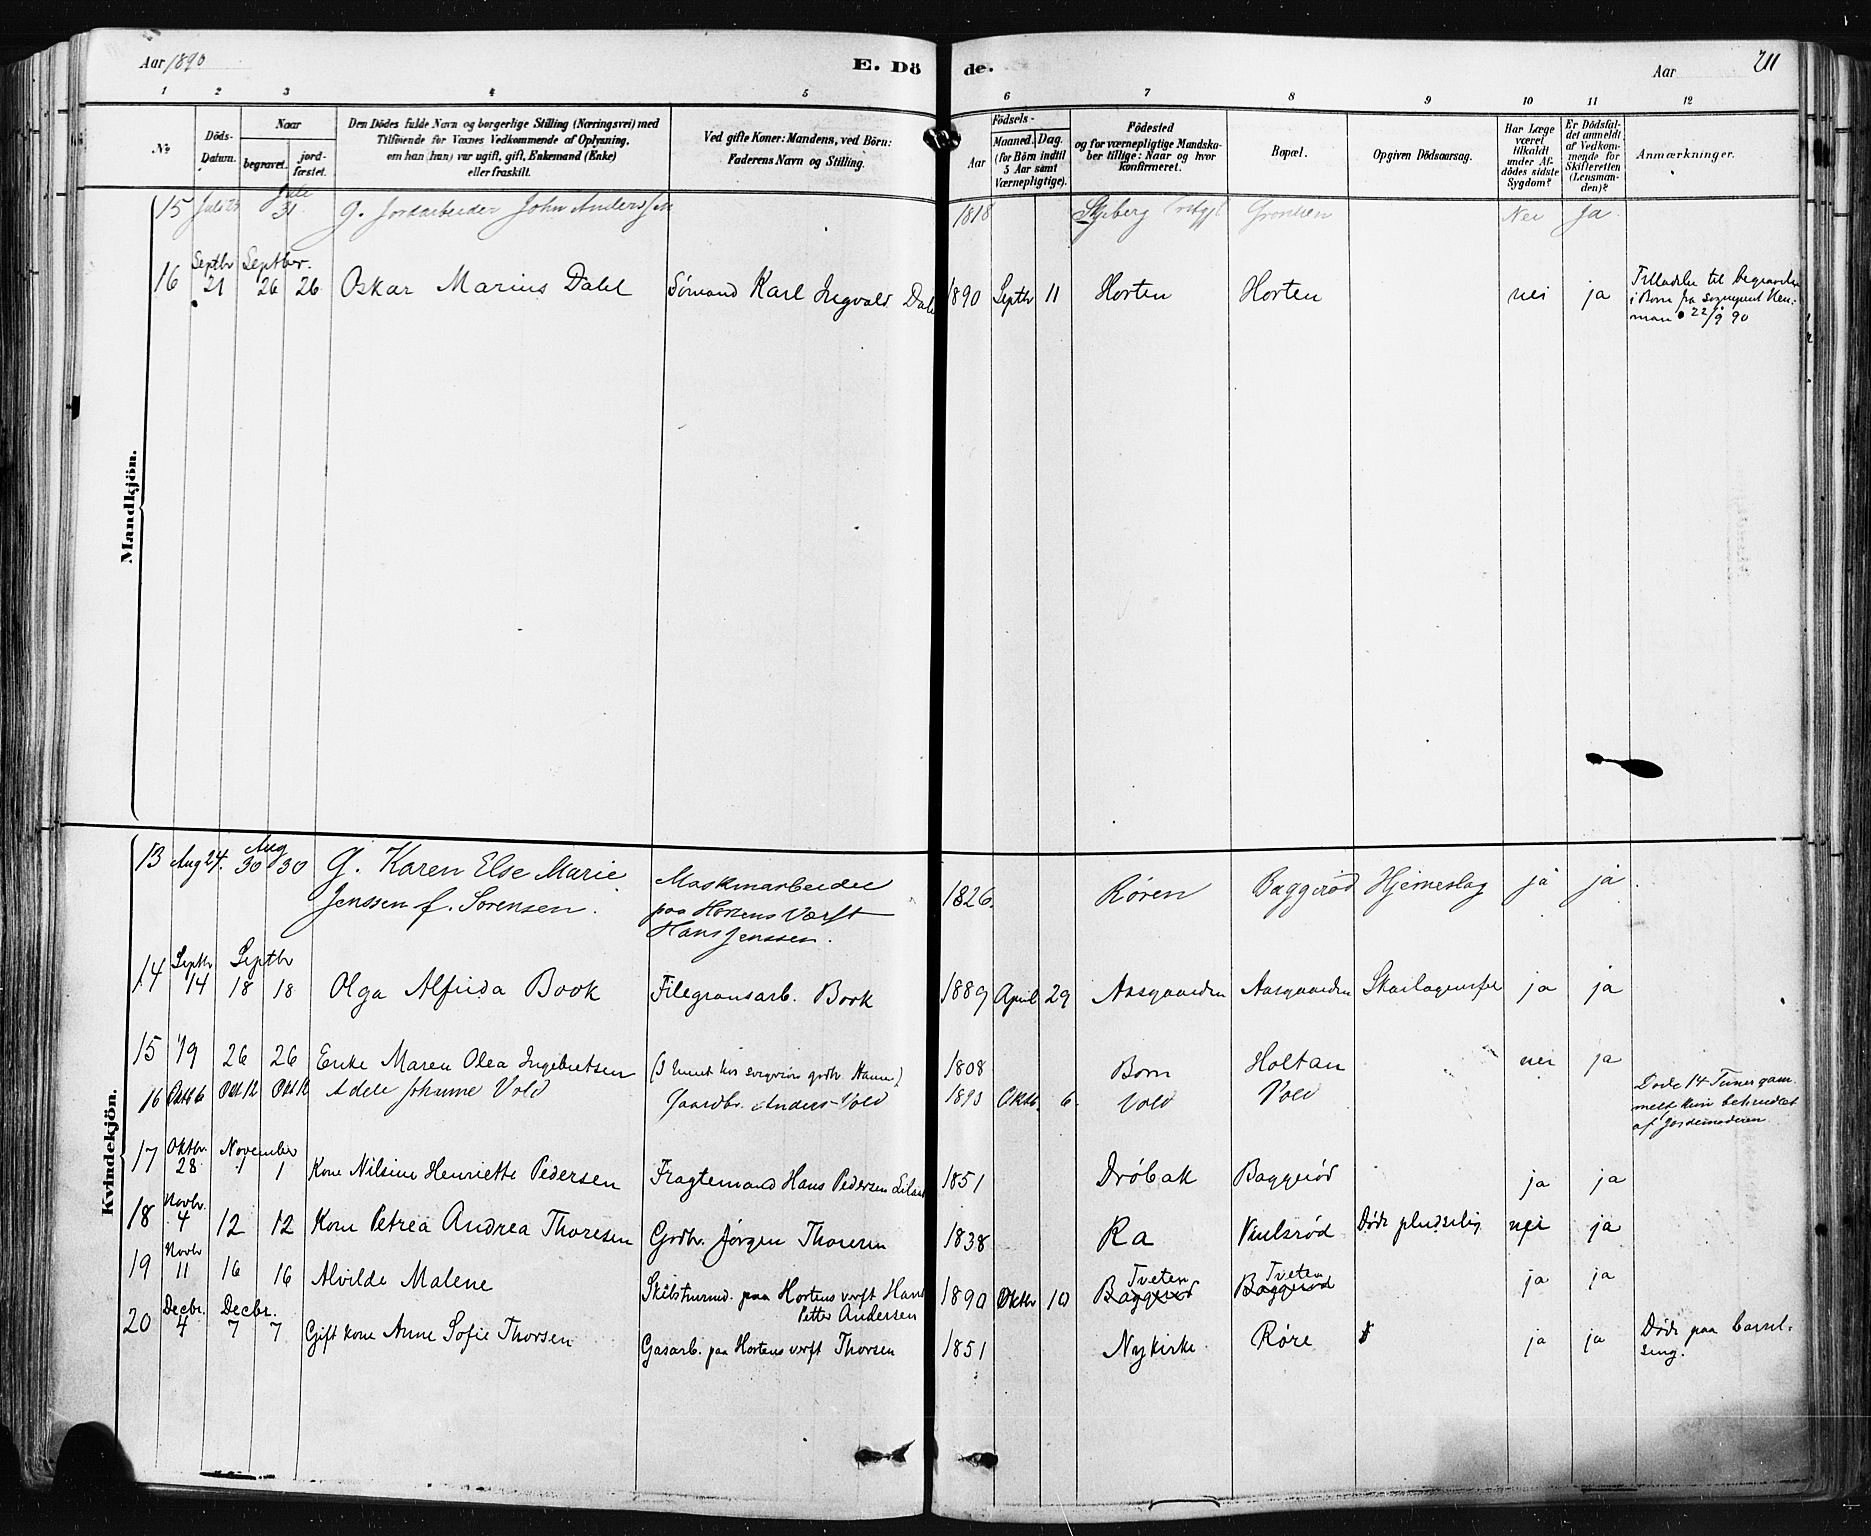 Aar 1890
E. Dö de.
Aar
211
1 2 3 4 5 6 7 8 9 10 11 12
No
Döds-Datum.
Naar
begravet.
jord-fæstet.
Den Dödes fulde Navn og borgerlige Stilling (Næringsvei) med
Tilföiende for Voxnes Vedkommende af Oplysning,
om han (hun) var ugift, gift, Enkemand (Enke)
eller fraskilt.
Ved gifte Koner: Mandens, ved Börn:
Faderens Navn og Stilling.
Födsels-
Aar
Maaned. Dag.
(for Börn indtil
5 Aar samt
Værnepligtige).
Födested
og for værnepligtige Mandska-
ber tillige: Naar og hvor
konfirmeret.
Bopæl.
Opgiven Dödsaarsag.
Har Læge
været
tilkaldt
under Af-
dödes sidste
Sygdom?
Er Dödsfal-
det anmeldt
af Vedkom-
mende for
Skifteretten
(Lensman-
den)?
Anmærkninger.
Mandkjön.
15 Juli 23 Juli 31 g. Jordarbeider John Anderssen 1818 Skjeberg Nei Ja
16 Septbr 21 Septber. 26 26 Oskar Marius Dahl Sømand Karl Ingvald Dahl 1890 Septbr 11 Horten Horten nei ja Tilladelse til begravelse
i Borre fra sogneprest
22/9 90
Kvindekjön.
13 Aug 24. Aug 30 30 G. Karen Else Marie
Jenssen f. Sorensen. Maskinarbeider
paa Hortens Værft
Hans Jenssen. 1826. Røren Baggerød Hjerneslag ja ja
14 Septbr 14 Septbr 18 18 Olga Alfrida Book Filegransarb. Book 1889 April 29 Aasgaarden Aasgaarden ja ja
15 19 26 26 Enke Maren Olea Ingebretsen 1808 Borre Holtan nei ja
16 Oktb 6 Okt 12 Okt 12 Adele Johanne Vold Gaardbr. Anders Vold Oktb. 6. Vold Vold Døde 14 Timer gam-
af Jordemoderen.
17 Oktbr 28 November 1 1 Kone Nilsine Henriette Pedersen Fragtemand Hans Pedersen 1851 Drøbak Baggerød ja ja
18 Novbr. 4 12 12 Kone Petrea Andrea Thoresen Grdbr. Jørgen Thoresen 1838 Ra Døde pludselig nei ja
19 Novbr 11 16 16 Alvilde Malene paa Hortens verft Hans
Petter Andersen 1890 Oktbr 10 Tveten Baggerød Tveten Baggerød ja ja
20 Decbr. 4 Decbr. 7 7 Gift kone Anne Sofie Thorsen Gasarb. paa Hortens verft Thorsen 1851 Nykirke Røre ja ja Døde paa barsel-
seng.